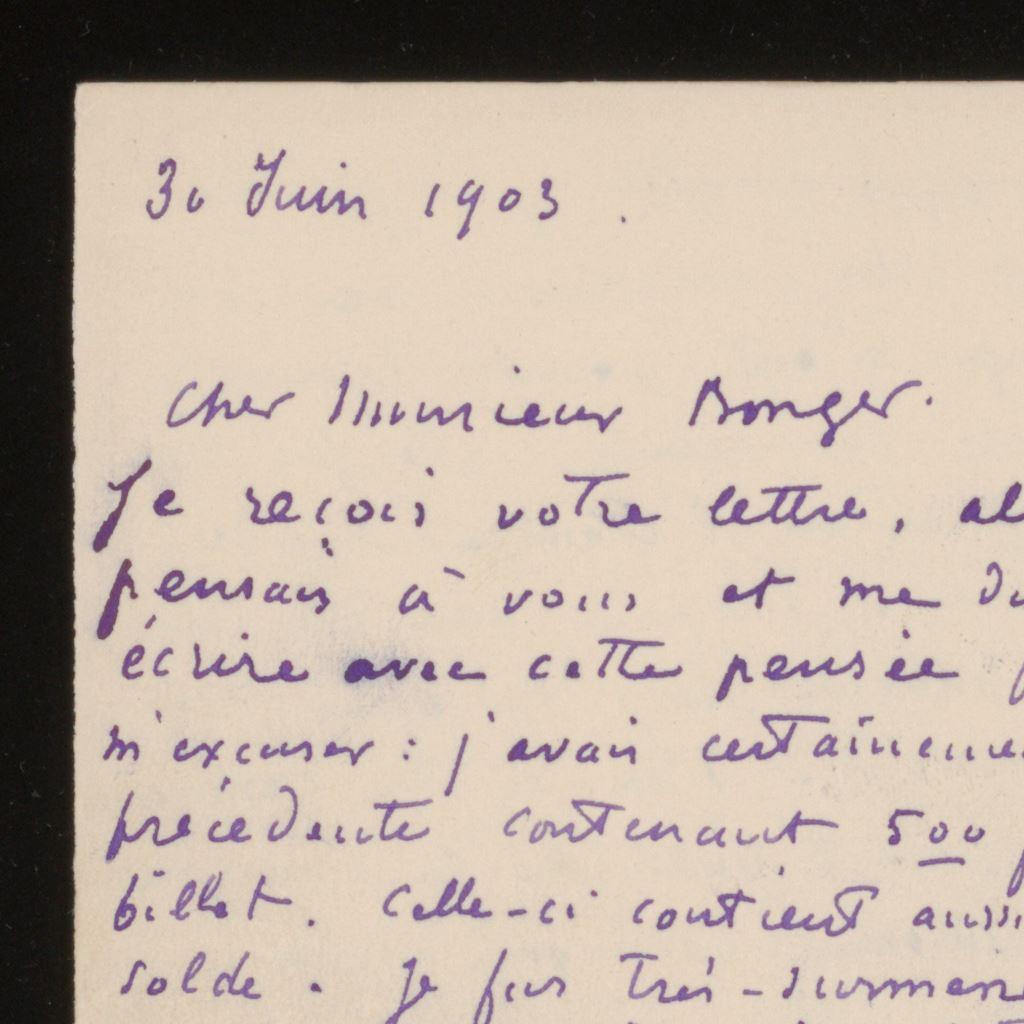 30 Juin 1903.
Cher Monsieur Bonger.
Je reçois votre lettre, al
pensais à vous et me
écrire avec cette pensée
m'excuser : j'avais certaineme
précédente contenant 500
billet. Celle-ci contient aussi
solde. Je fus très-surmen